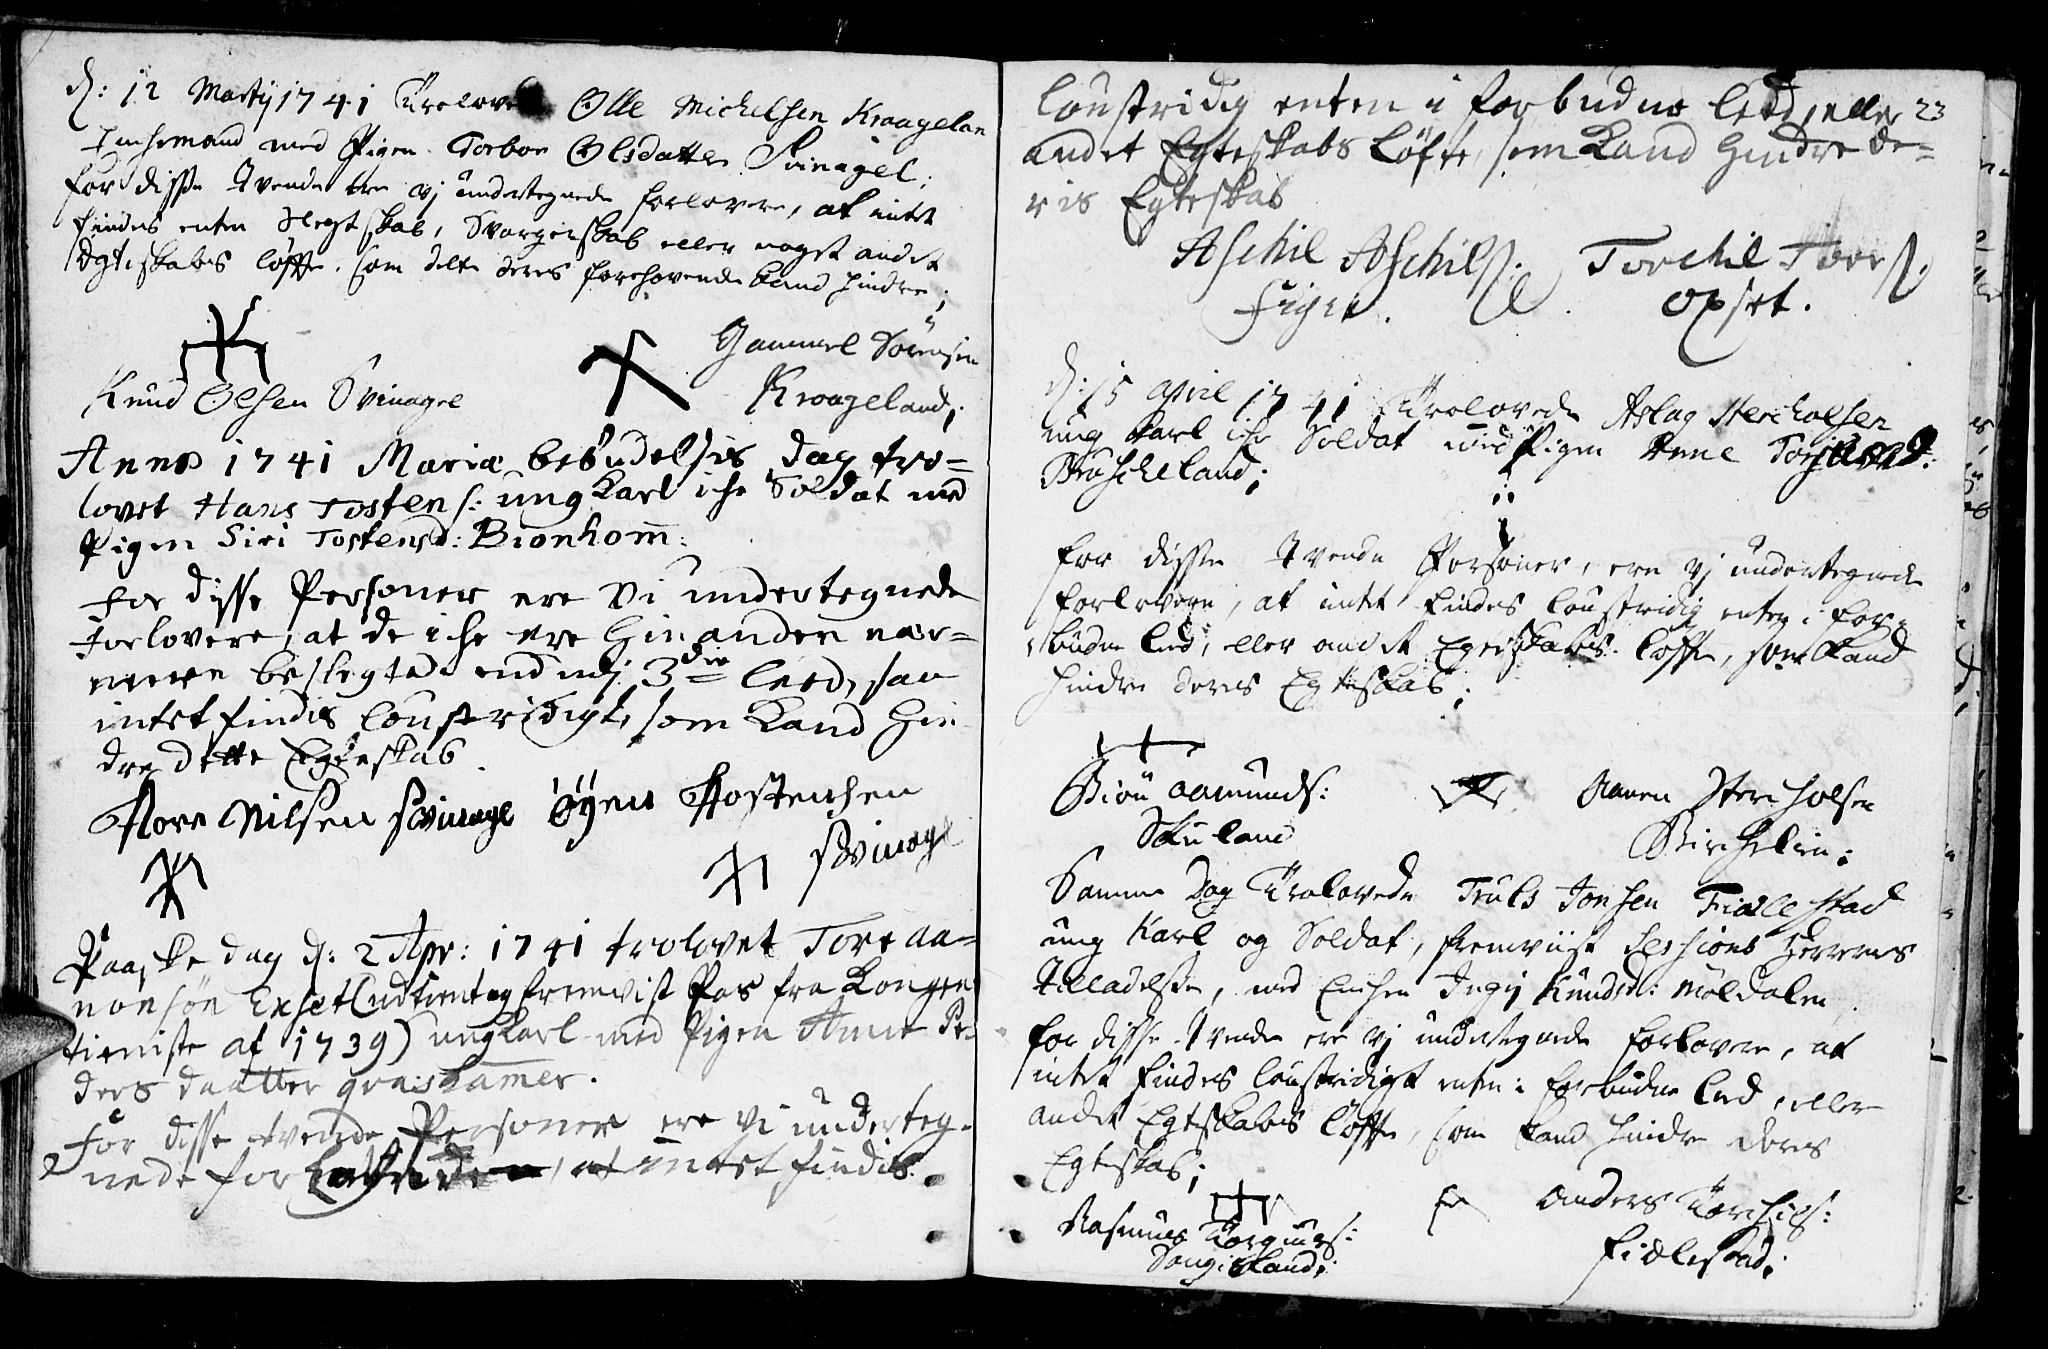 d: 12 Martij 1741 Trolovet Olle Michelsen Kraagelan
Enchemand med Pigen Torbor Olsdatter Svinagel;
for disse Tvende ere vj undertegnede forlovere, at intet
findes enten Slegtskab, Svogerskab eller noget andet
Egteskabes løffte, som dette deres forehavende kand hindre;
Knud Olsen Svinagel
Gammel Sörensen
Kraageland;
Anno 1741 Mariæ bebudelses dag tro=
lovet Hans Tostens: ung Karl iche Soldat med
Pigen Siri Tostensd: Bionhom:
for disse Personer ere vi undertegnede
Forlovere, at de iche ere hinanden nær=
mere beslegtede end udj 3die leed, saa
intet findis lonstridigt, som kand hin
dre dette Egteskab
Tore Nilsen svinagl Öÿen Tostensen
svinagl
Paaske dag d: 2 Apr: 1741 trolovet Tore aa=
nonsön Exset (udtient og fremvist Pas fra Kongens
tieniste af 1739) ung karl med Pigen Anne Pe=
ders daatter graiskamer.
For disse tvende Personer ere vi underteg-
nede for at intet findis
23
lonstridig enten i forbudne ledd, eller
andet Egteskabs Löfte, som kand hindre de=
ris Egteskab
Aschil Aschils: Torchil Tors:
Figet. Opset.
d: 15 April 1741 Trolovede Aslag Stercholsen
ung karl iche Soldat med Pigen Anne
Bruscheland;
for disse Tvende Personer, ere vj undertegnede
forlovere, at intet findes lonstridig enten i for-
budne led, eller andet Egteskabes løffte, som kand
hindre deres Egteskab;
Biön Aamunds: Aanen Stercholsen
Skuland Birchelim;
Samme Dag Trolovede Truls Jonsen Fidlestad
ung Karl og Soldat, fremviist Sessions Herrernes
Tilladelse, med Enchen Ingij Knudsd: Möldalen
for disse Tvende ere vj undertegnede forlovere, at
intet findes lonstridigt enten i forbudne led, eller
andet Egteskabes løffte, som kand hindre deres
Egteskab;
Rasmus Torgiuers: Anders Torchils:
Fidlestad;